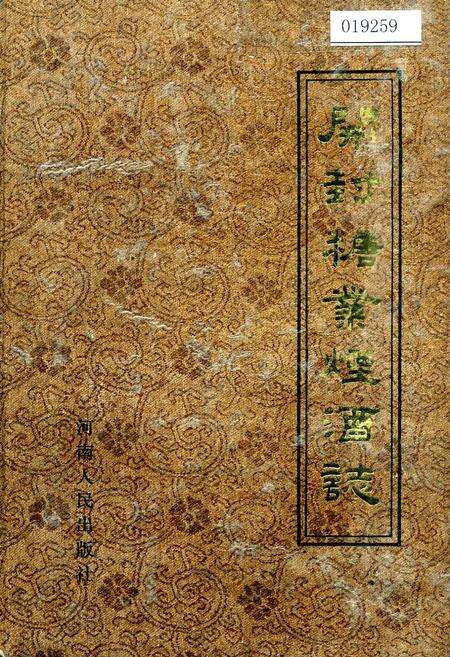 019259
開封糖業煙酒誌
河南人民出版社